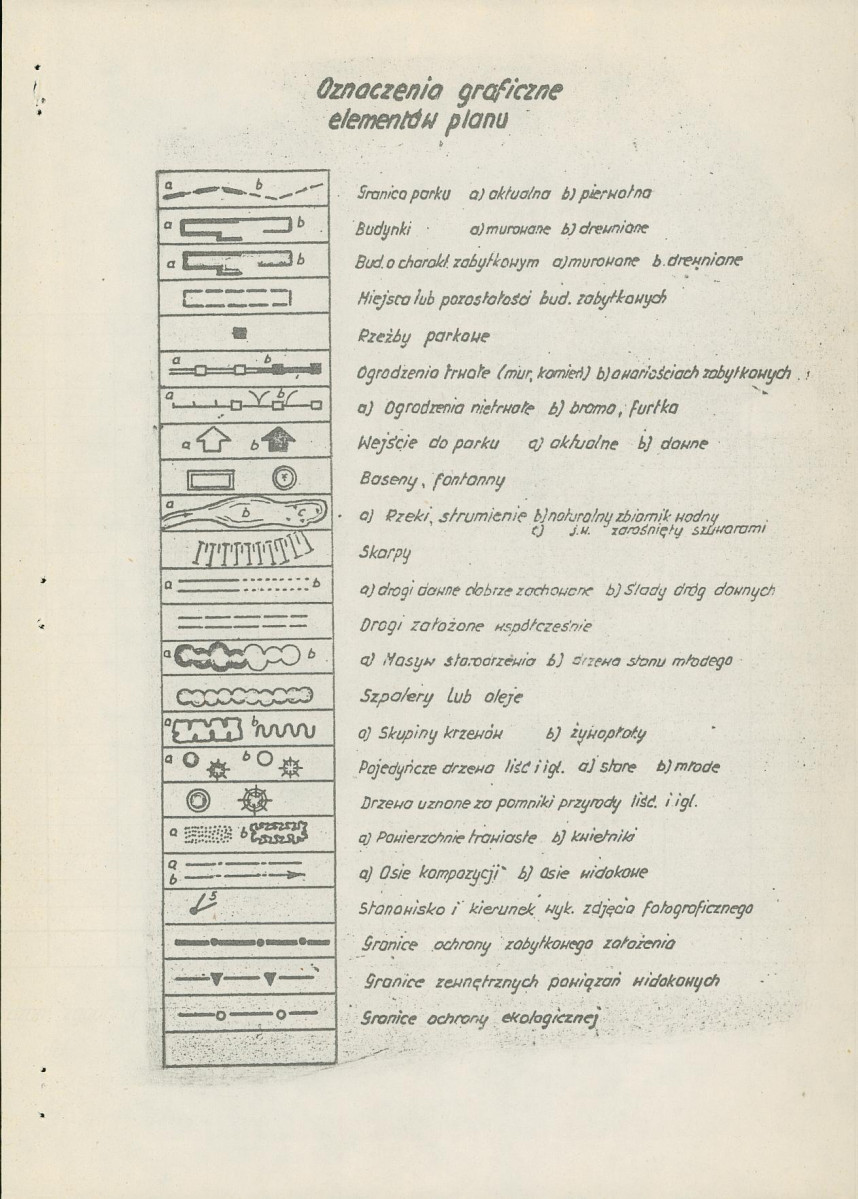 Oznaczenia graficzne
elementów planu
a b Granica parku a) aktualna b) pierwotna
a b Budynki a) murowane b) drewniane
a b Bud. o charakt. zabytkowym a) murowane b. drewniane
Miejsca lub pozostałości bud. zabytkowych
Rzeźby parkowe
a b Ogrodzenia trwałe (mur, kamień) b) o wartościach zabytkowych
a b a) Ogrodzenia nietrwałe b) brama, furtka
a b Wejście do parku a) aktualne b) dawne
Baseny, fontanny
a b c a) Rzeki, strumienie b) naturalny zbiornik wodny
c) j.w. zarośnięty szuwarami
Skarpy
a b a) drogi dawne dobrze zachowane b) Ślady dróg dawnych
Drogi założone współcześnie
a b a) Masyw starodrzewia b) drzewa stanu młodego
Szpalery lub aleje
a b a) Skupiny krzewów b) żywopłoty
a b Pojedyńcze drzewa liść i igl. a) stare b) młode
Drzewa uznane za pomniki przyrody liść. i igl.
a b a) Powierzchnie trawiaste b) kwietniki
a
b a) Osie kompozycji b) Osie widokowe
5 Stanowisko i kierunek wyk. zdjęcia fotograficznego
Granice ochrony zabytkowego założenia
Granice zewnętrznych powiązań widokowych
Granice ochrony ekologicznej